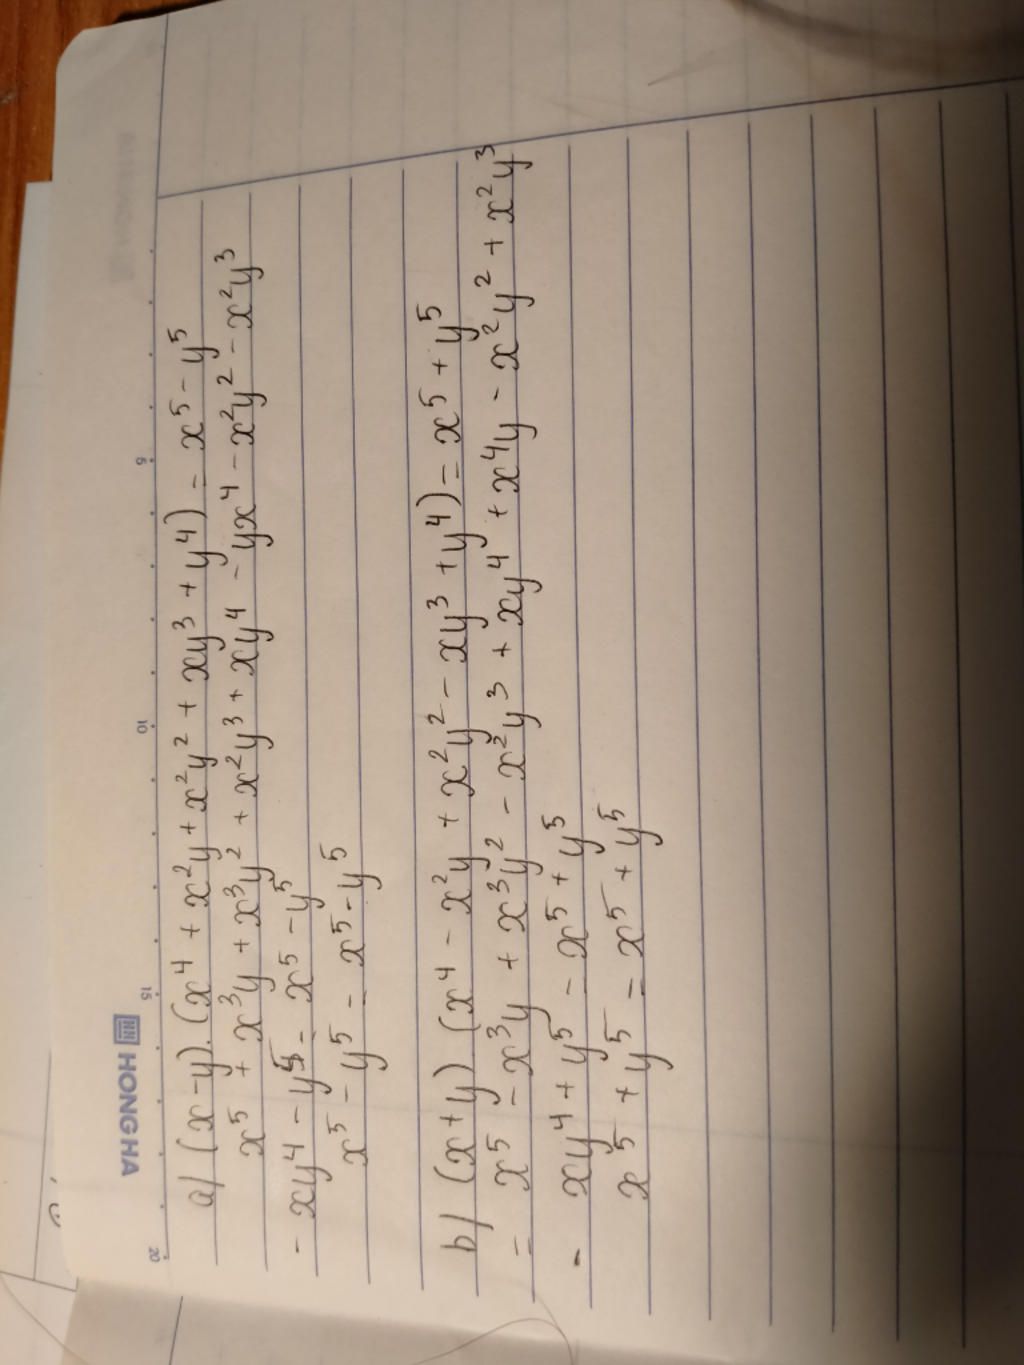 HONG HA
20 15 10 5
a/ (x-y).(x⁴ + x²y + x²y² + xy³ + y⁴) = x⁵ - y⁵
x⁵ + x³y + x³y² + x²y³ + xy⁴ - yx⁴ - x²y² - x²y³
- xy⁴ - y⁵ = x⁵ - y⁵
x⁵ - y⁵ = x⁵ - y⁵
b/ (x+y).(x⁴ - x²y + x²y² - xy³ + y⁴) = x⁵ + y⁵
= x⁵ - x³y + x³y² - x²y³ + xy⁴ + x⁴y - x²y² + x²y³
- xy⁴ + y⁵ = x⁵ + y⁵
x⁵ + y⁵ = x⁵ + y⁵